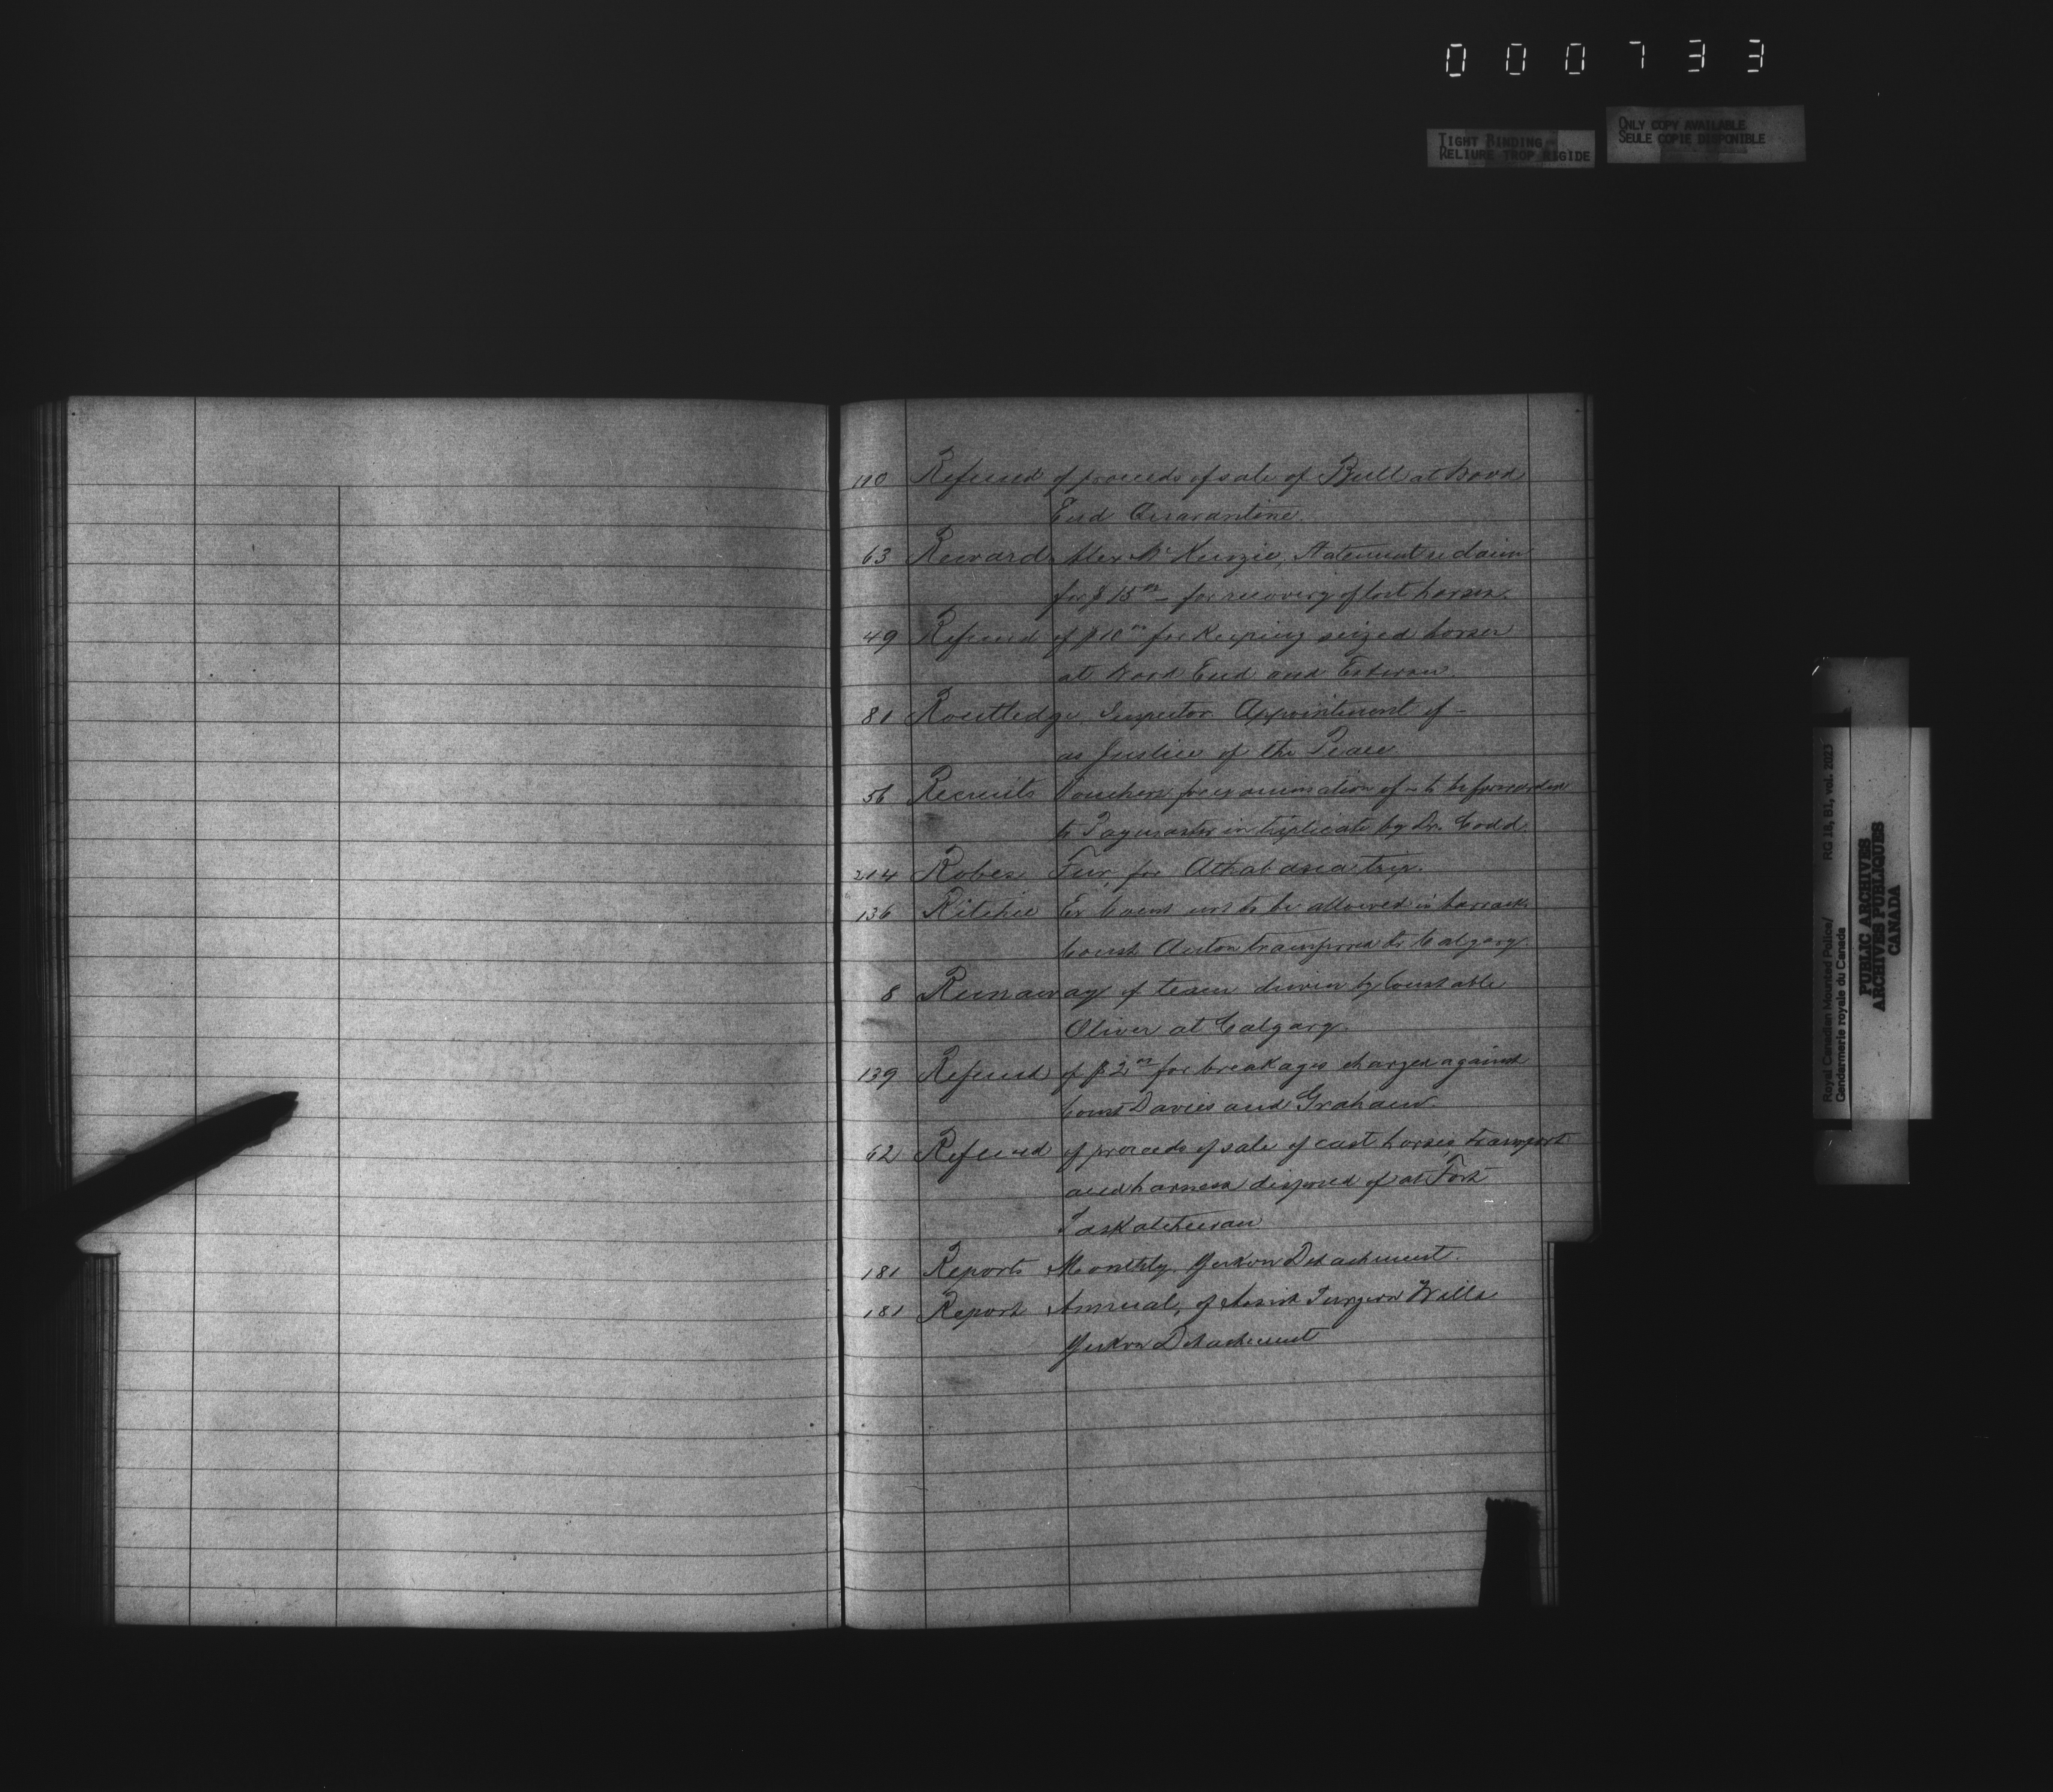 000733
TIGHT BINDING
RELIURE TROP RIGIDE
ONLY COPY AVAILABLE
SEULE COPIE DISPONIBLE
110 Refund of proceeds of sale of Bull at Wood
End Quarantine.
63 Reward Alex McKenzie, Statement re claim
for $15.00 – for recovery of lost horses.
49 Refund of $10.00 for Keeping seized horses
at Wood End and Estevan.
81 Routledge Inspector Appointment of –
as Justice of the Peace
56 Recruits Vouchers for examination of – to be forwarded
to Paymaster in triplicate by Dr. Codd.
214 Robes Fur, for Athabasca trip.
136 Ritchie Ex Const not to be allowed in barracks
Const Acton transferred to Calgary.
8 Runaway of team driven by Constable
Oliver at Calgary.
139 Refund of $2.00 for breakages charged against
Const Davies and Graham.
62 Refund of proceeds of sale of cast horses, transport
and harness disposed of at Fort
Saskatchewan
181 Reports Monthly. Yukon Detachment.
181 Report Annual, of Assist Surgeon Wills
Yukon Detachment
Royal Canadian Mounted Police/ RG 18, B1, vol. 2023
Gendarmerie royale du Canada
PUBLIC ARCHIVES
ARCHIVES PUBLIQUES
CANADA